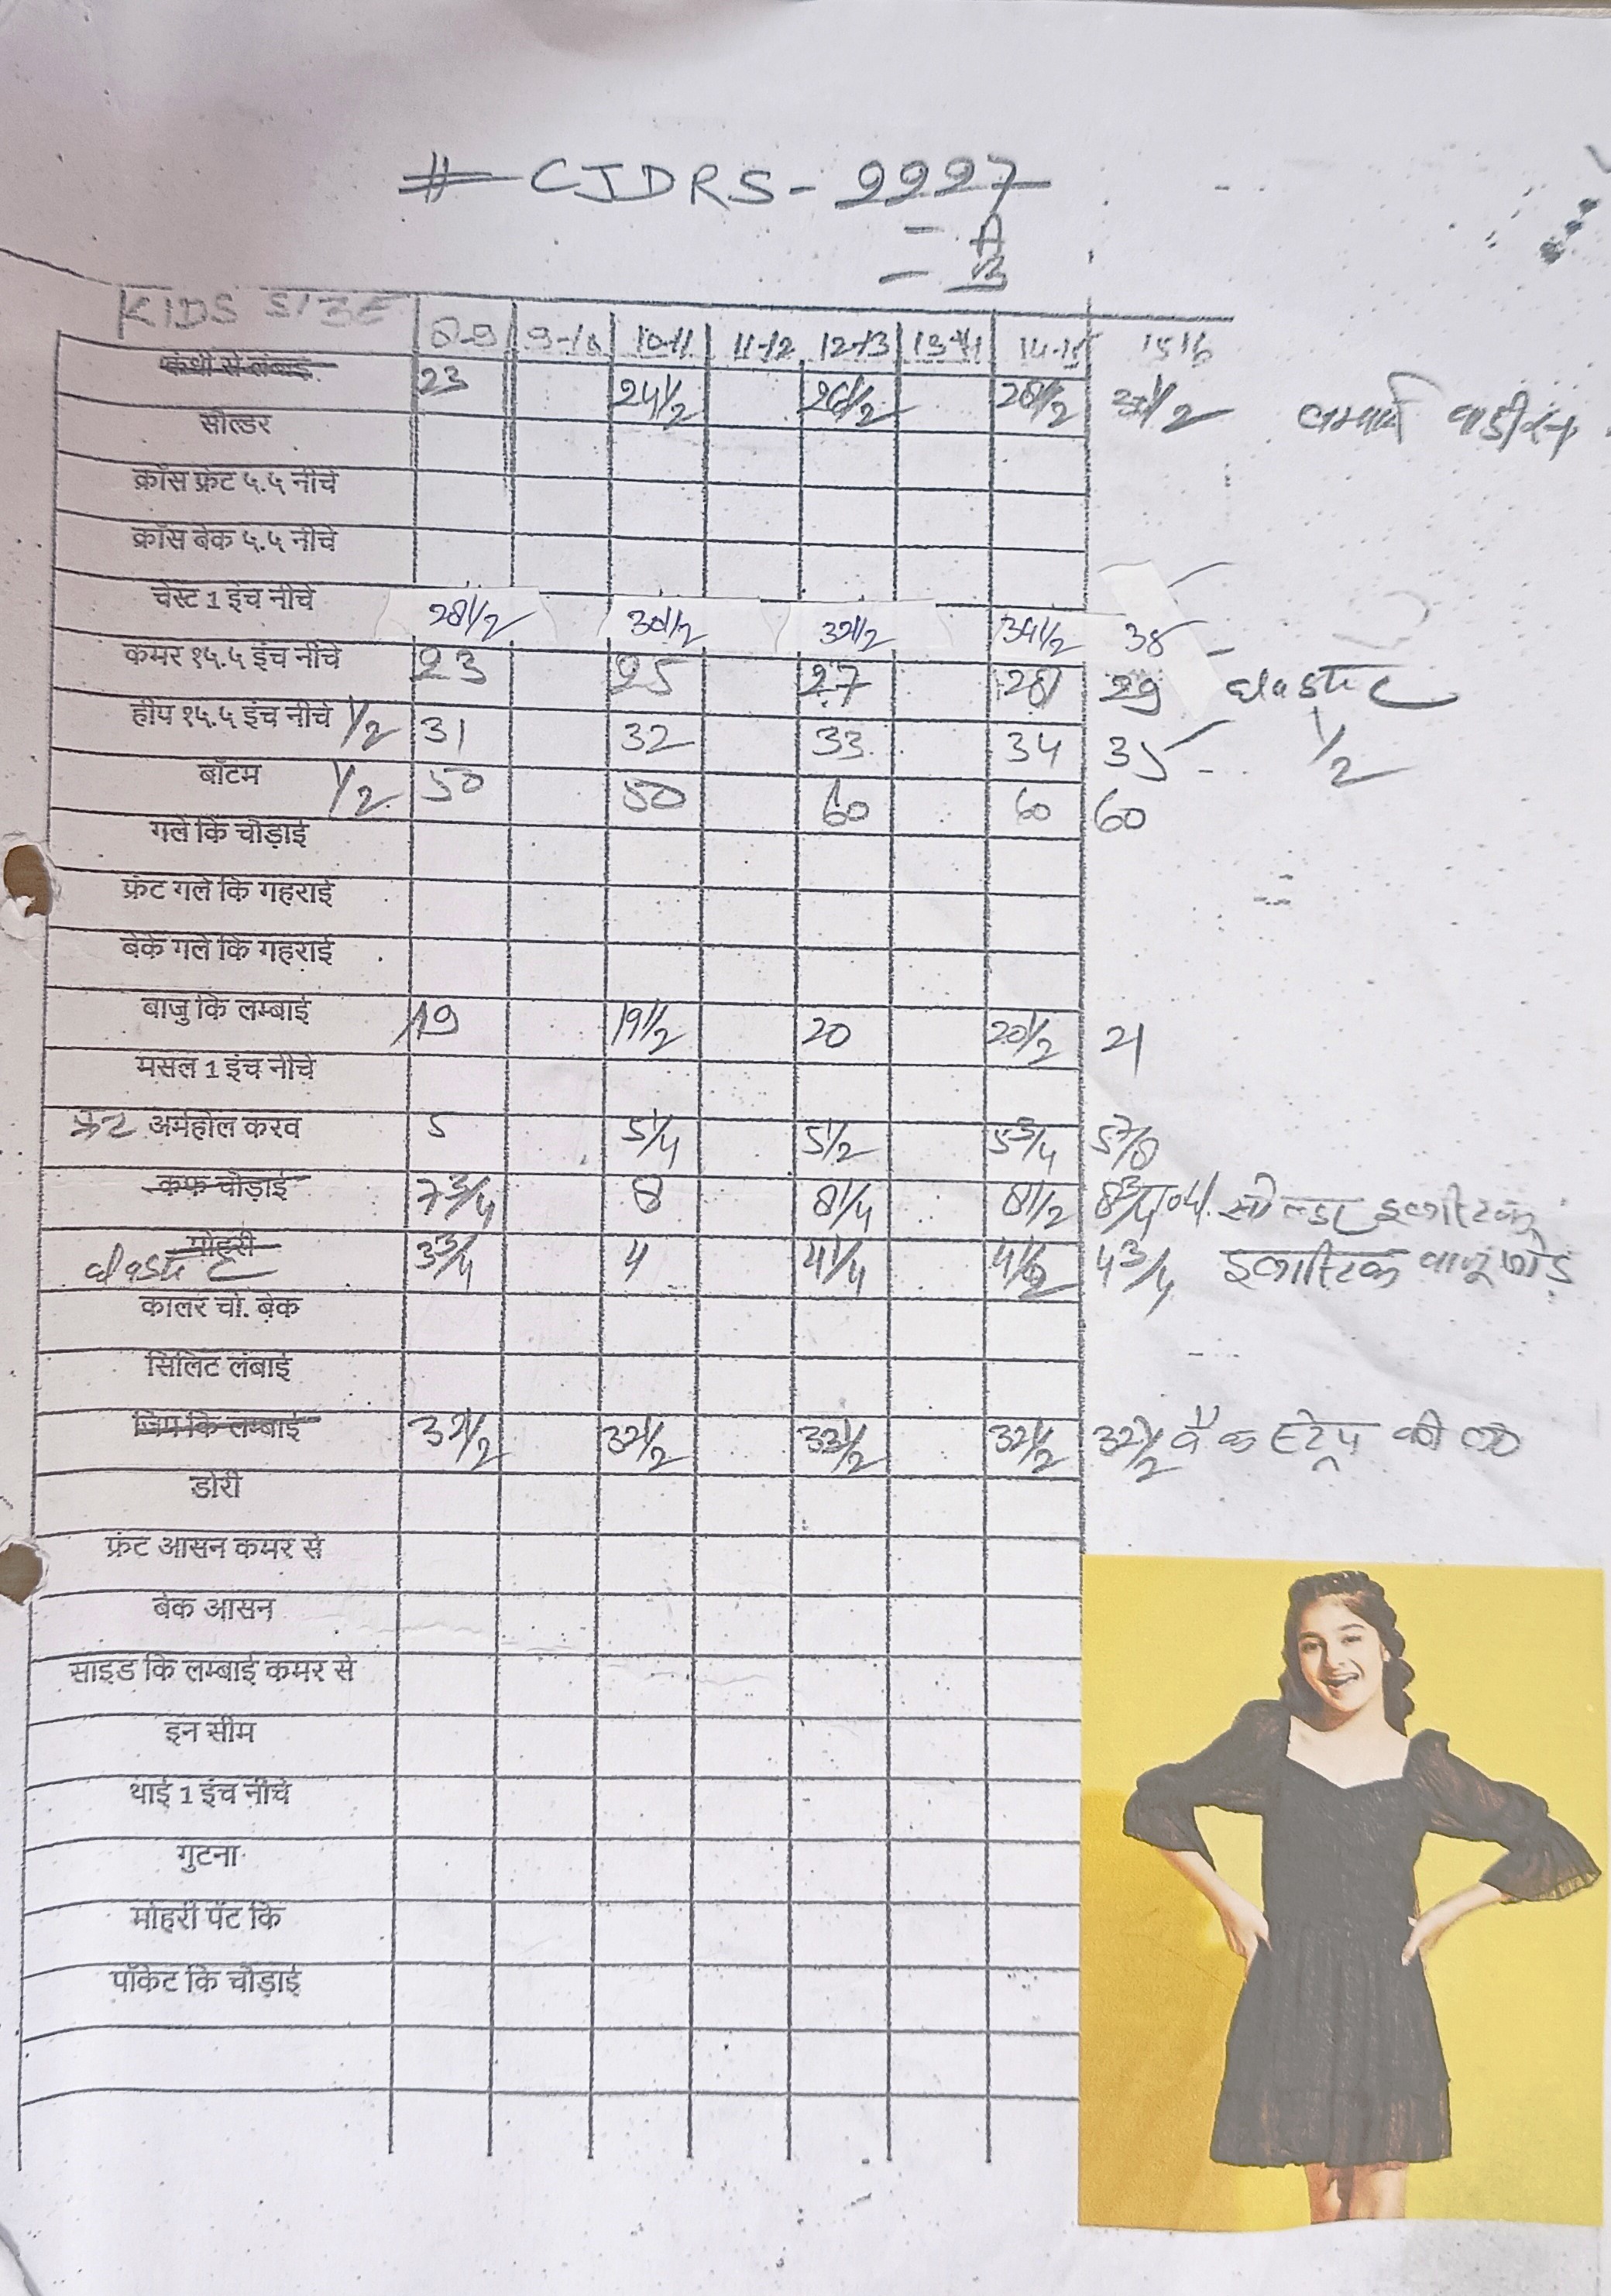 # CJDRS - 2227
- A
- B
KIDS SIZE 8-9 9-10 10-11 11-12 12-13 13-14 14-15 15 16
कंधी से लंबाई 23 24 1/2 26 1/2 28 1/2 1/2
सोल्डर
क्रॉस फ्रंट ५.५ नीचे
क्रॉस बेक ५.५ नीचे
चेस्ट 1 इंच नीचे 28 1/2 30 1/2 32 1/2 34 1/2 38 -
कमर १५.५ इंच नीचे 23 25 27 28 29 elastic
हीप १५.५ इंच नीचे 1/2 31 32 33 34 35 - 1/2
बॉटम 1/2 50 50 60 60 60
गले कि चोड़ाई
फ्रंट गले कि गहराई
बेक गले कि गहराई
बाजु कि लम्बाई 19 19 1/2 20 20 1/2 21
मसल 1 इंच नीचे
फ्रंट अर्महोल करव 5 5 1/4 5 1/2 5 3/4 5 7/8
कफ चोड़ाई 7 3/4 8 8 1/4 8 1/2 8 3/4 सोल्डर इलास्टिक
मोहरी elastic 3 3/4 4 4 1/4 4 1/2 4 3/4 इलास्टिक बाजू जोड़
कालर चो. बेक
सिलिट लंबाई
जिप कि लम्बाई 32 1/2 32 1/2 32 1/2 32 1/2 बैक स्ट्रेप की
डोरी
फ्रंट आसन कमर से
बेक आसन
साइड कि लम्बाई कमर से
इन सीम
थाई 1 इंच नीचे
गुटना
मोहरी पेंट कि
पॉकेट कि चौड़ाई